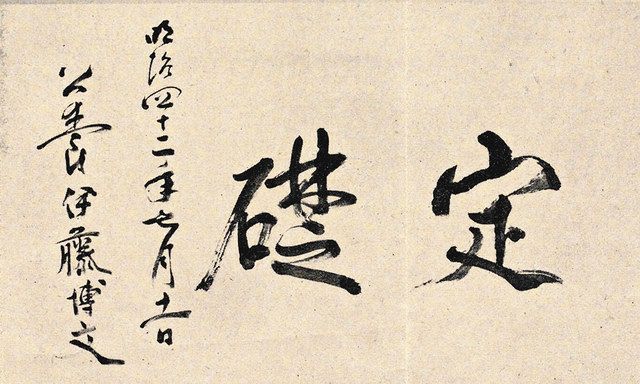 定礎
明治四十二年七月十一日
公爵伊藤博文